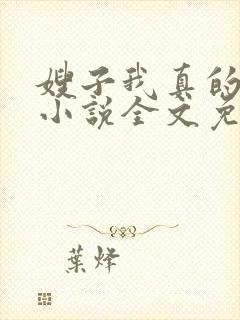 嫂子我真的
小说全文免
葉烽